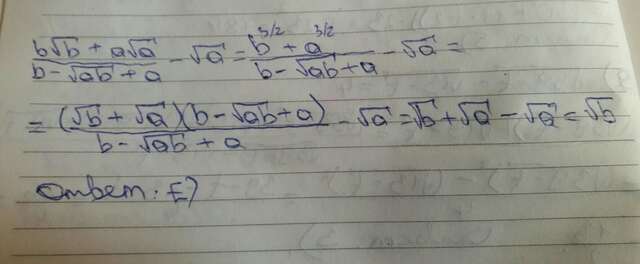 (b√b + a√a)/(b - √ab + a) - √a = (b^3/2 + a^3/2)/(b - √ab + a) - √a =
= (√b + √a)(b - √ab + a)/(b - √ab + a) - √a = √b + √a - √a = √b
ответ: E)